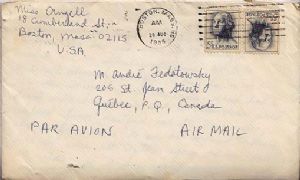 Miss Crngell
18 Cumberland St.,
Boston, Mass 02115
U.S.A
BOSTON, MASS
AM
1965
M. André Fedotowsky
205 St. Jean Street
Québec, P.Q., Canada
PAR AVION AIR MAIL